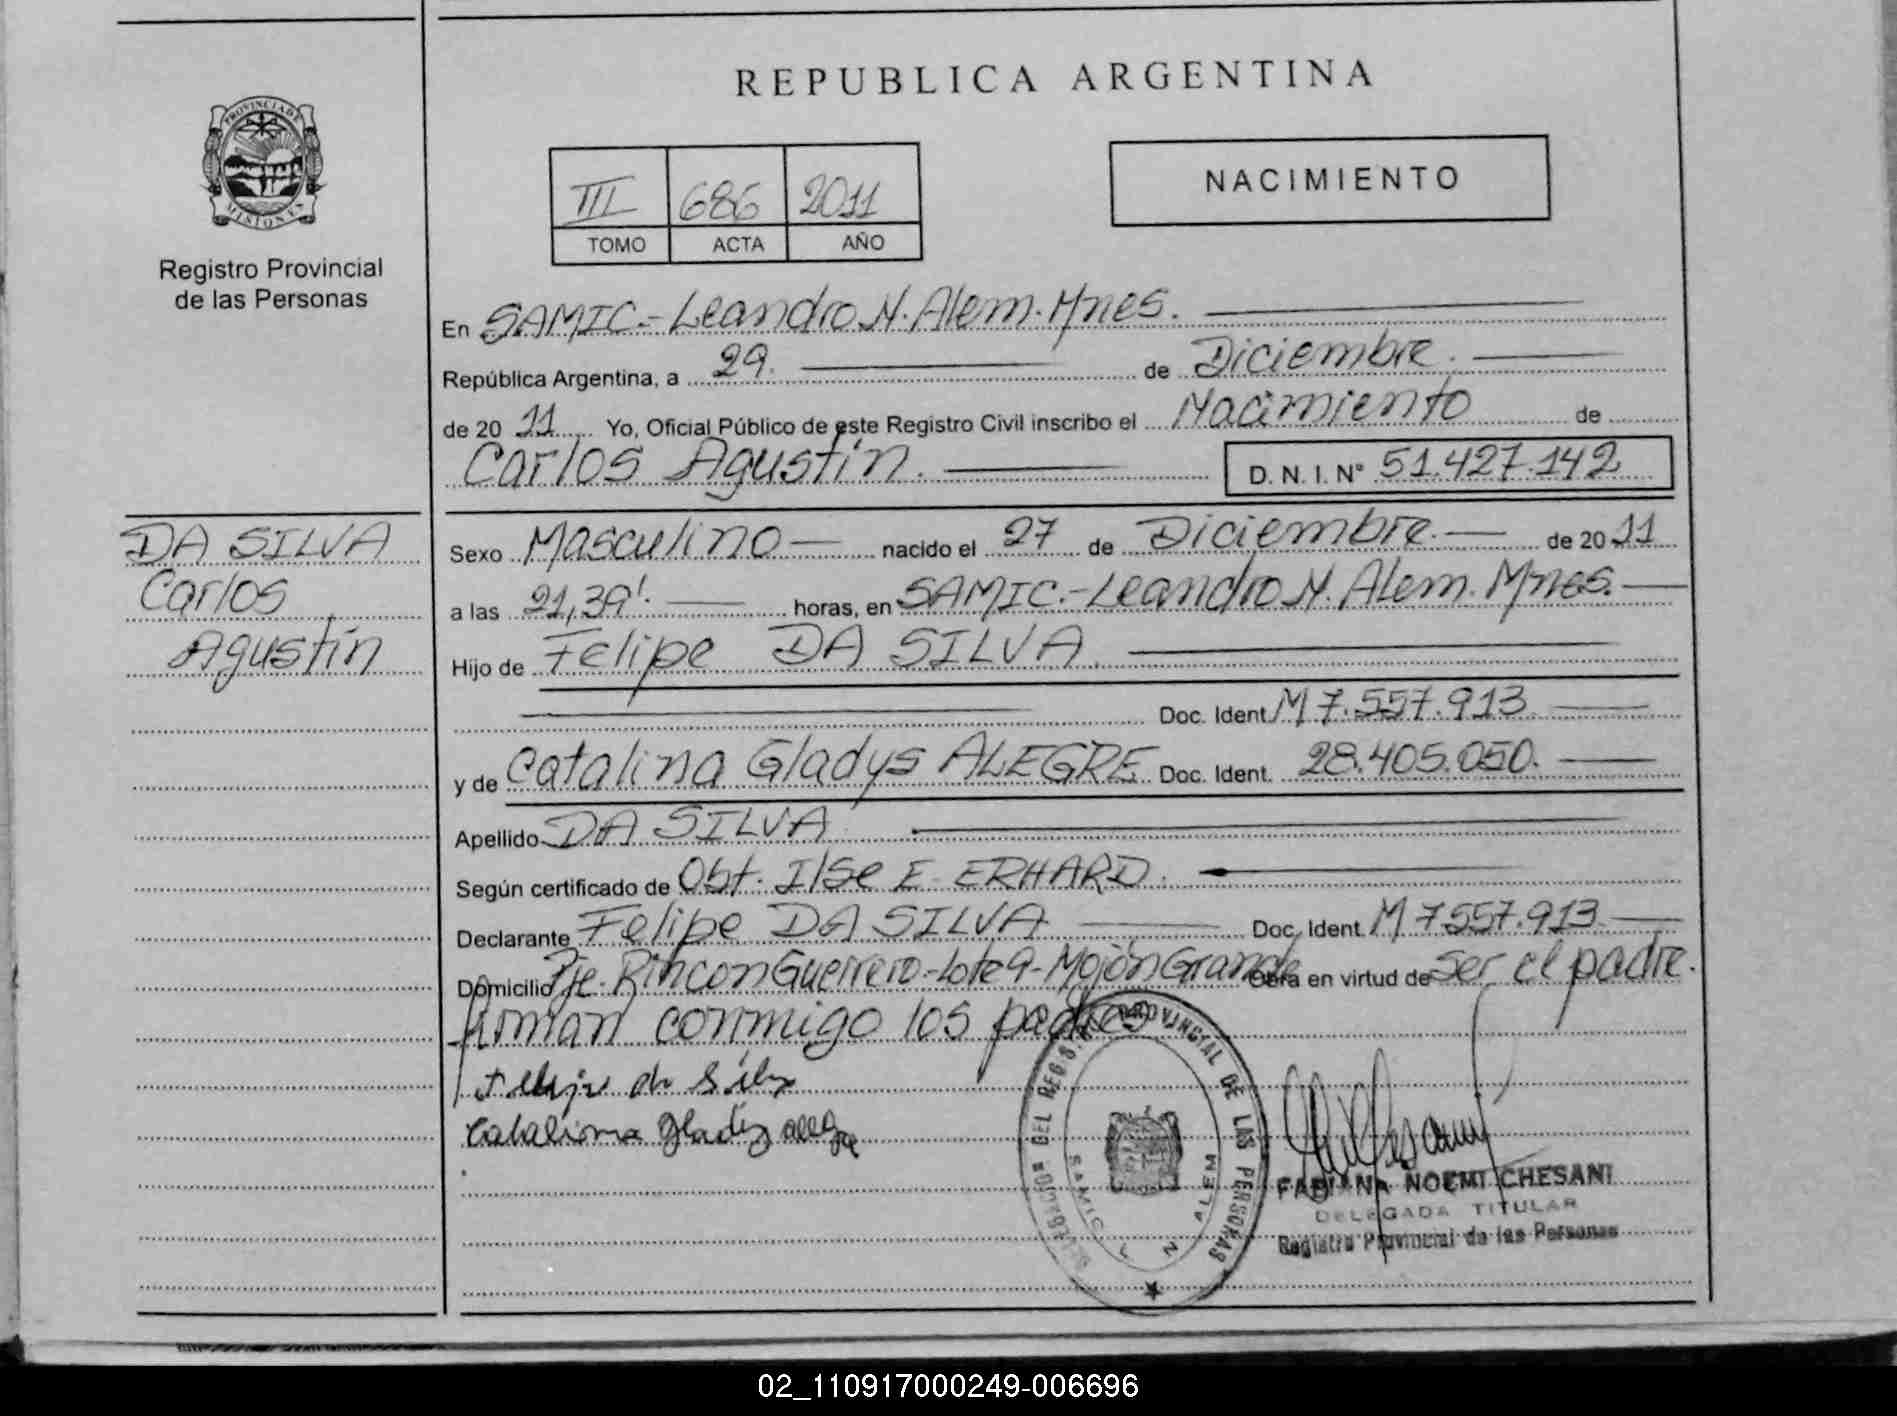 REPUBLICA ARGENTINA
PROVINCIA DE
MISIONES
Registro Provincial
de las Personas
III 686 2011
TOMO ACTA AÑO
NACIMIENTO
En SAMIC.- Leandro N. Alem. Mnes.
República Argentina, a 29. de Diciembre.
de 20 11 Yo, Oficial Público de este Registro Civil inscribo el Nacimiento de
Carlos Agustín. D. N. I. N° 51.427.142
DA SILVA
Carlos
Agustín
Sexo Masculino nacido el 27 de Diciembre. de 20 11
a las 21,39'. horas, en SAMIC.- Leandro N. Alem. Mnes.
Hijo de Felipe DA SILVA
Doc. Ident. M 7.557.913
y de Catalina Gladys ALEGRE Doc. Ident. 28.405.050.
Apellido DA SILVA
Según certificado de Obst. Ilse E. ERHARD.
Declarante Felipe DA SILVA Doc. Ident. M 7.557.913
Domicilio Pje. Rincon Guerrero - Lote 9 - Mojón Grande Obra en virtud de ser el padre.
Firman conmigo los padres
Felipe da Silva
Catalina Gladys Alegre
DEL REG. PROVINCIAL DE LAS PERSONAS
SAMIC L N ALEM
FABIANA NOEMI CHESANI
DELEGADA TITULAR
Registro Provincial de las Personas
02_110917000249-006696